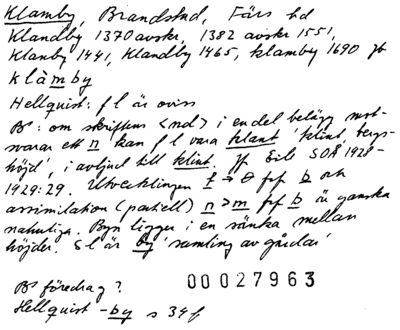 Klamby, Brandstad, Färs hd
Klandby 1370 avskr, 1382 avskr 1551,
Klanby 1441, Klandby 1465, klamby 1690 jb
klàmby
Hellquist: f l är oviss
BE: om skriftens <nd> i en del belägg mot-
svarar ett n kan f l vara klant 'klint, bergs-
höjd', i avljud till klint. Jfr SOÅ 1928-
1929:29. Utvecklingen t → θ frf b och
assimilation (partiell) n > m frf b är ganska
naturliga. Byn ligger i en sänka mellan
höjder. S l är by 'samling av gårdar'
BE föredrag?
00027963
Hellquist -by s 34f